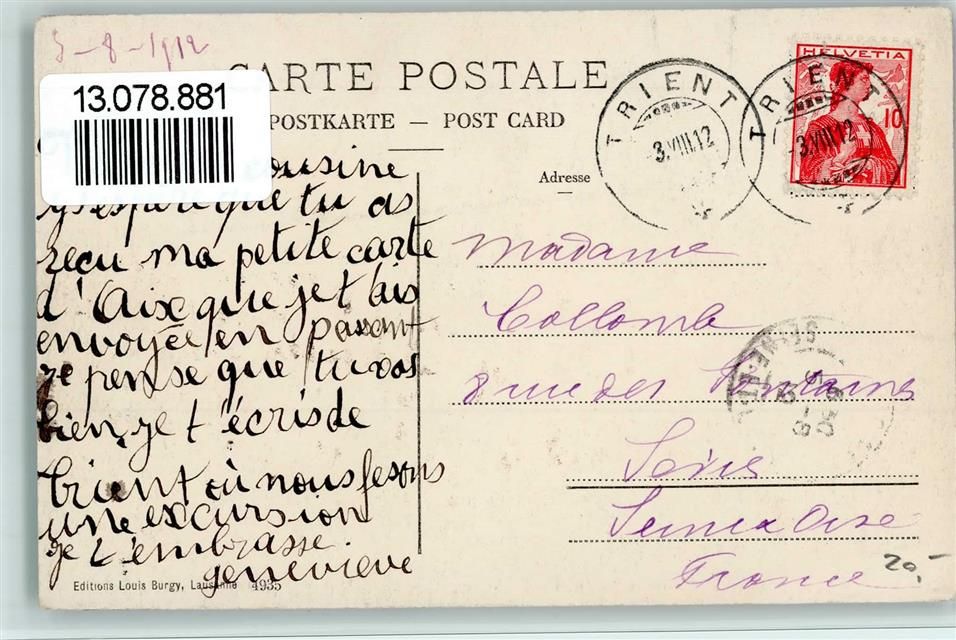 5-8-1912
13.078.881
CARTE POSTALE
POSTKARTE — POST CARD
Adresse
HELVETIA
10
TRIENT
3.VIII.12
TRIENT
3.VIII.12
cousine
j'espère que tu as
reçu ma petite carte
d'Aix que je t'ais
envoyée en passant
je pense que tu vas
bien, je t'écris de
Trient où nous fesons
une excursion
je t'embrasse.
geneviève
Madame
Collomb
8 rue des Fontaines
Seine et Oise
France
20,-
Editions Louis Burgy, Lausanne 4935